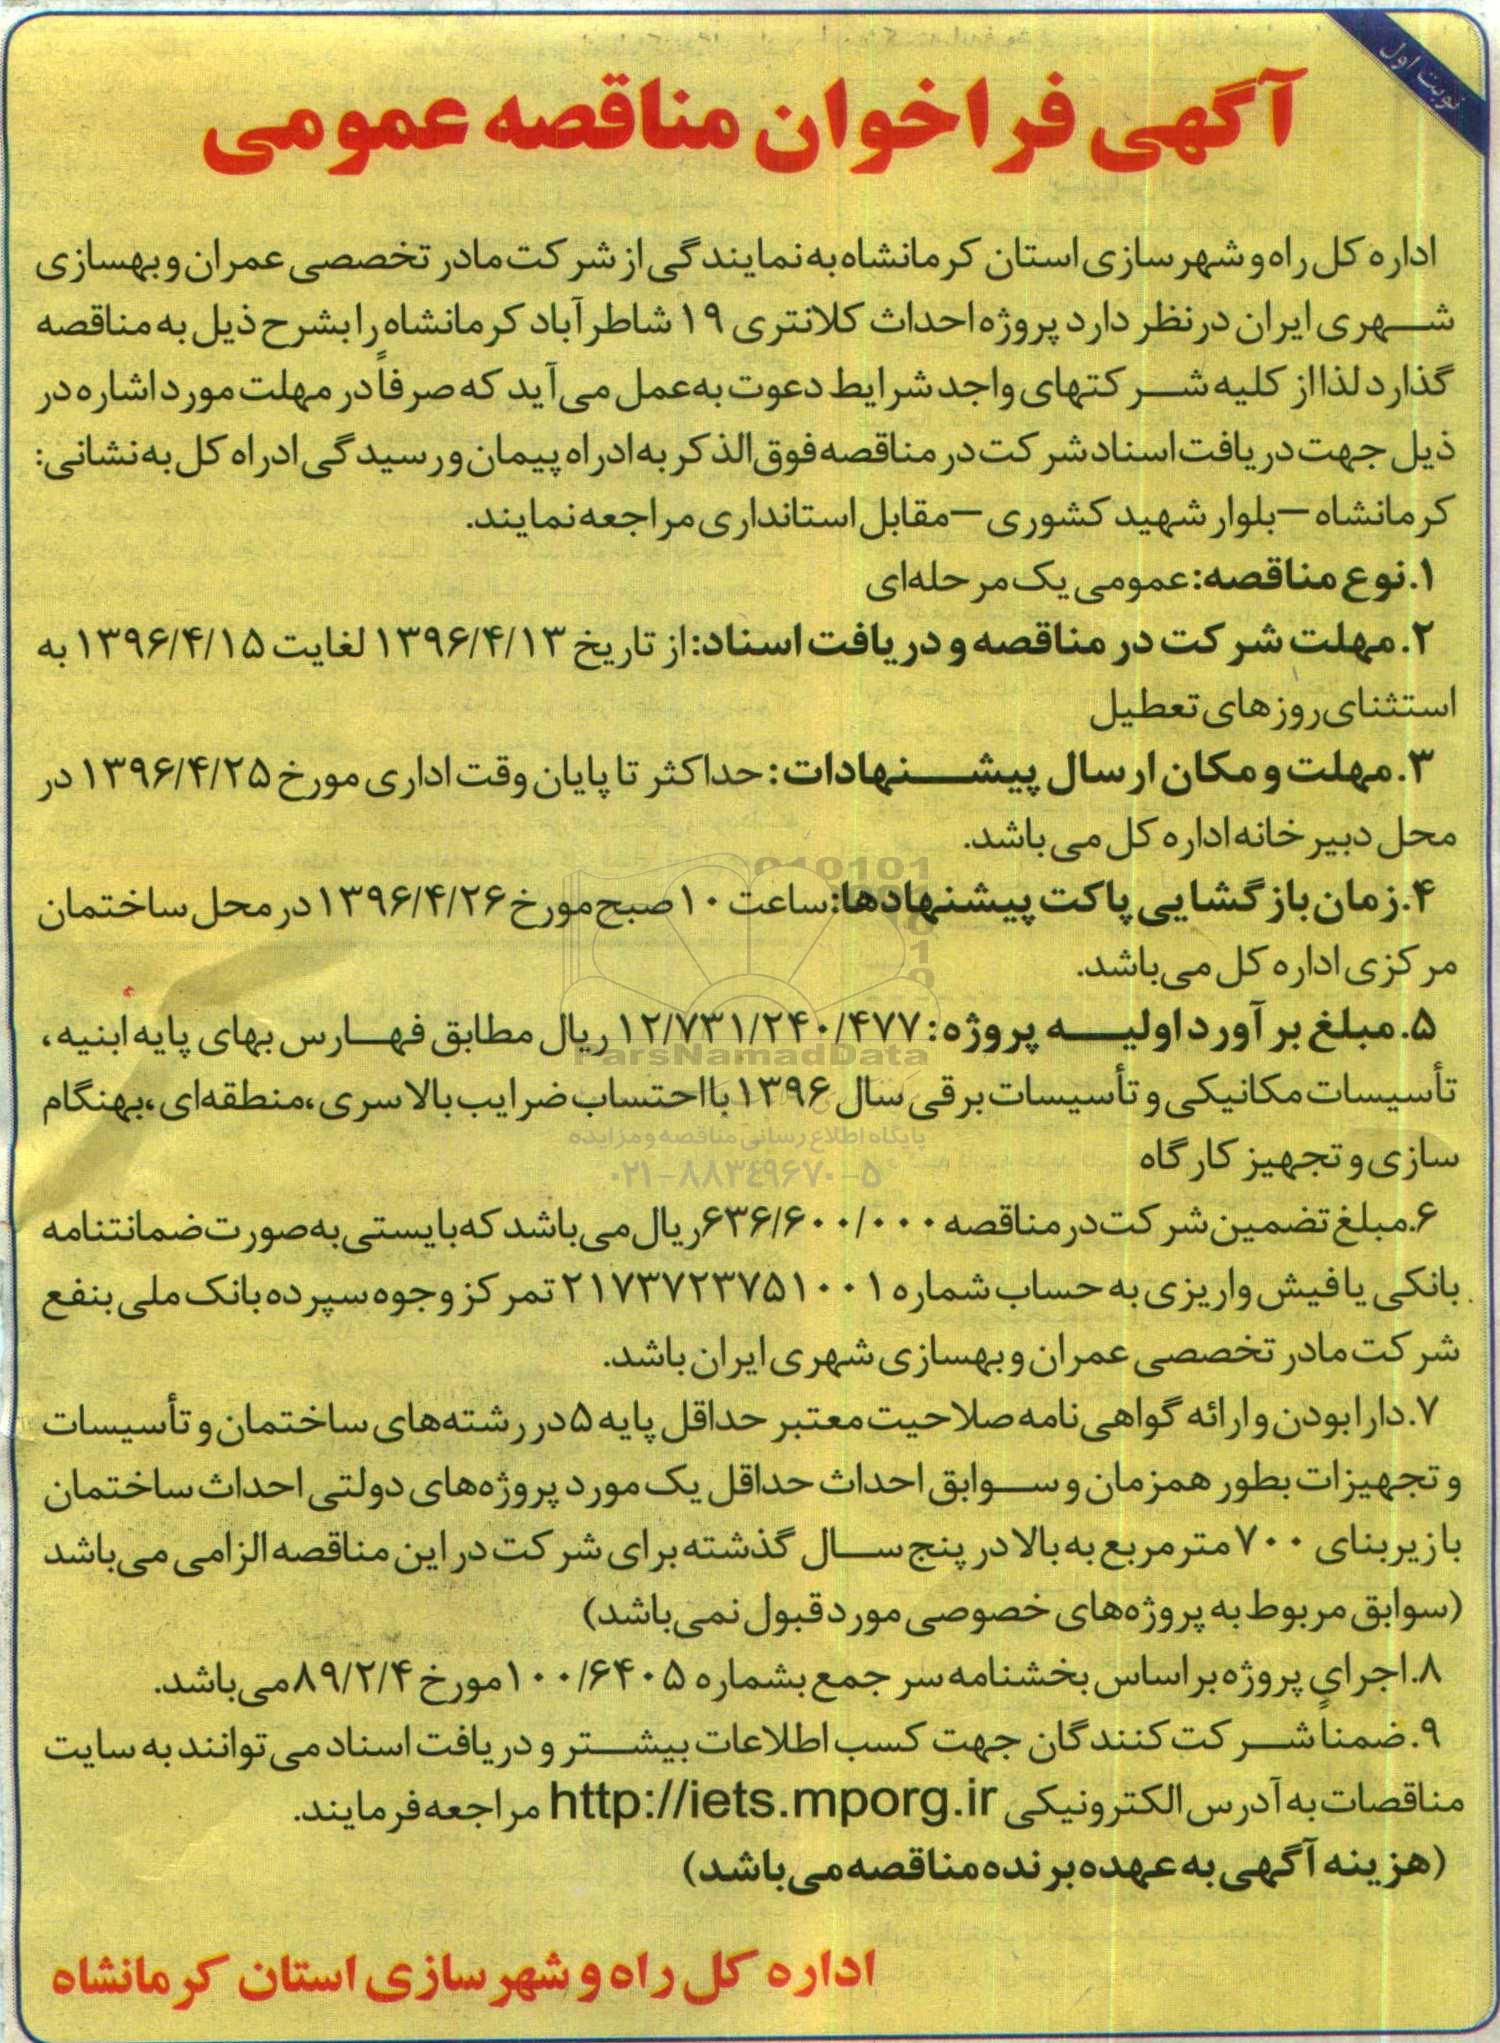 نوبت اول
آگهی فراخوان مناقصه عمومی
اداره کل راه و شهرسازی استان کرمانشاه به نمایندگی از شرکت مادر تخصصی عمران و بهسازی
شهری ایران در نظر دارد پروژه احداث کلانتری ۱۹ شاطرآباد کرمانشاه را بشرح ذیل به مناقصه
گذارد لذا از کلیه شرکتهای واجد شرایط دعوت به عمل می‌آید که صرفاً در مهلت مورد اشاره در
ذیل جهت دریافت اسناد شرکت در مناقصه فوق الذکر به ادراه پیمان و رسیدگی ادراه کل به نشانی:
کرمانشاه – بلوار شهید کشوری – مقابل استانداری مراجعه نمایند.
۱. نوع مناقصه: عمومی یک مرحله‌ای
۲. مهلت شرکت در مناقصه و دریافت اسناد: از تاریخ ۱۳۹۶/۴/۱۳ لغایت ۱۳۹۶/۴/۱۵ به
استثنای روزهای تعطیل
۳. مهلت و مکان ارسال پیشنهادات: حداکثر تا پایان وقت اداری مورخ ۱۳۹۶/۴/۲۵ در
محل دبیرخانه اداره کل می باشد.
۴. زمان بازگشایی پاکت پیشنهادها: ساعت ۱۰ صبح مورخ ۱۳۹۶/۴/۲۶ در محل ساختمان
مرکزی اداره کل می‌باشد.
۵. مبلغ برآورد اولیه پروژه: ۱۲/۷۳۱/۲۴۰/۴۷۷ ریال مطابق فهارس بهای پایه ابنیه،
تأسیسات مکانیکی و تأسیسات برقی سال ۱۳۹۶ با احتساب ضرایب بالاسری، منطقه‌ای، بهنگام
سازی و تجهیز کارگاه
۶. مبلغ تضمین شرکت در مناقصه ۶۳۶/۶۰۰/۰۰۰ ریال می باشد که بایستی به صورت ضمانتنامه
بانکی یا فیش واریزی به حساب شماره ۲۱۷۳۷۲۳۷۵۱۰۰۱ تمرکز وجوه سپرده بانک ملی بنفع
شرکت مادر تخصصی عمران و بهسازی شهری ایران باشد.
۷. دارا بودن و ارائه گواهی نامه صلاحیت معتبر حداقل پایه ۵ در رشته‌های ساختمان و تأسیسات
و تجهیزات بطور همزمان و سوابق احداث حداقل یک مورد پروژه‌های دولتی احداث ساختمان
با زیربنای ۷۰۰ مترمربع به بالا در پنج سال گذشته برای شرکت در این مناقصه الزامی می‌باشد
(سوابق مربوط به پروژه‌های خصوصی مورد قبول نمی‌باشد)
۸. اجرای پروژه بر اساس بخشنامه سر جمع بشماره ۱۰۰/۶۴۰۵ مورخ ۸۹/۲/۴ می‌باشد.
۹. ضمناً شرکت کنندگان جهت کسب اطلاعات بیشتر و دریافت اسناد می توانند به سایت
مناقصات به آدرس الکترونیکی http://iets.mporg.ir مراجعه فرمایند.
(هزینه آگهی به عهده برنده مناقصه می‌باشد)
اداره کل راه و شهرسازی استان کرمانشاه
ParsNamadData
پایگاه اطلاع رسانی مناقصه و مزایده
۰۲۱-۸۸۳۴۹۶۷۰-۵